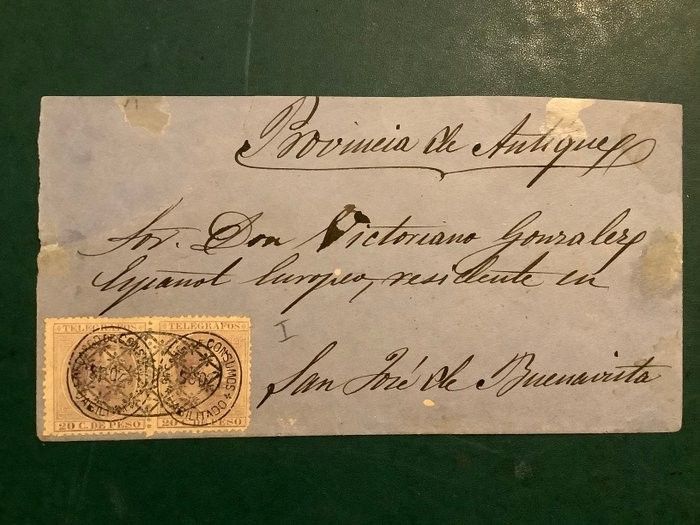 Provincia de Antique
Sor. Don Victoriano Gonzalez
Español Europeo, residente en
I
San José de Buenavista
TELEGRAFOS TELEGRAFOS
CONSUMOS
HABILITADO
20 C. DE PESO 20 C. DE PESO